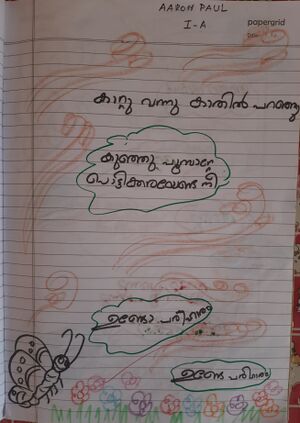 AARON PAUL
I-A
papergrid
കാറ്റു വന്നു കാതിൽ പറഞ്ഞു
കുഞ്ഞു പൂമ്പാറ്റേ
പൊട്ടിക്കരയേണ്ട നീ
ഉണ്ടോ പരിഹാരം
ഉണ്ടേ പരിഹാരം